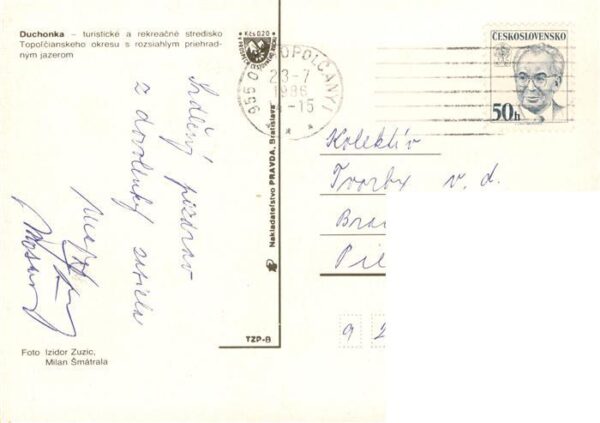 Duchonka – turistické a rekreačné stredisko
Topoľčianskeho okresu s rozsiahlym priehrad-
ným jazerom
Kčs 0,20
955 01 TOPOĽČANY 1
23-7
1986
-15
ČESKOSLOVENSKO
50h
Srdečný pozdrav
z dovolenky zasiela
Nakladateľstvo PRAVDA, Bratislava
Kolektív
Tvorby v. d.
Bra
Pie
9 2
TZP-B
Foto Izidor Zuzic,
Milan Šmátrala